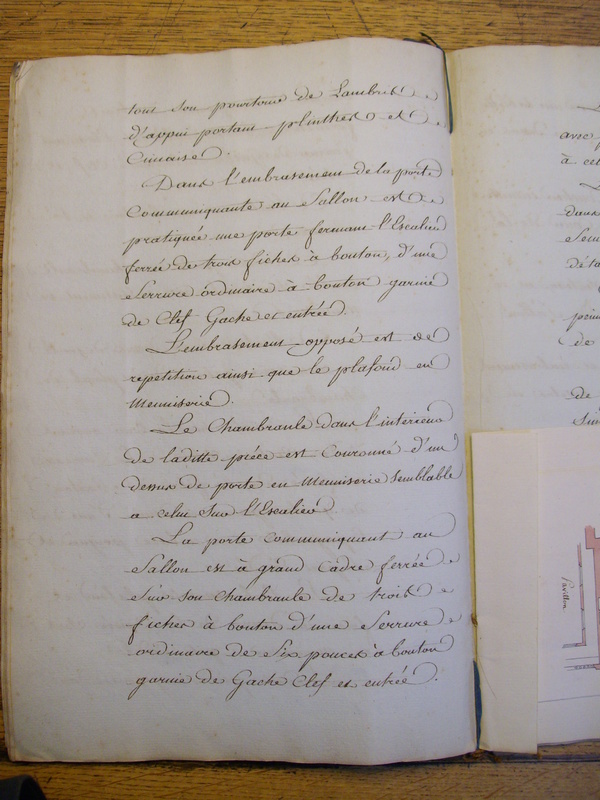 tout son pourtour de Lambris
d'appui portant plinthes et
Cimaise.
Dans l'embrasement de la porte
Communiquante au Sallon est
pratiquée une porte fermant l'Escalier
ferrée de trois fiches à bouton, d'une
Serrure ordinaire à bouton garnie
de Clef Gache et entrée.
L'embrasement opposé est de
repetition ainsi que le plafond en
Menuiserie.
Le Chambranle dans l'interieur
de laditte piéce est Couronné d'un
dessus de porte en Menuiserie Semblable
a celui Sur l'Escalier.
La porte communiquant au
Sallon est à grand Cadre ferrée
Sur son Chambranle de trois
fiches à bouton d'une Serrure
ordinaire de Six pouces à bouton
garnie de Gache Clef et entrée.
avec
à cet
dans
de
de
Pavillon